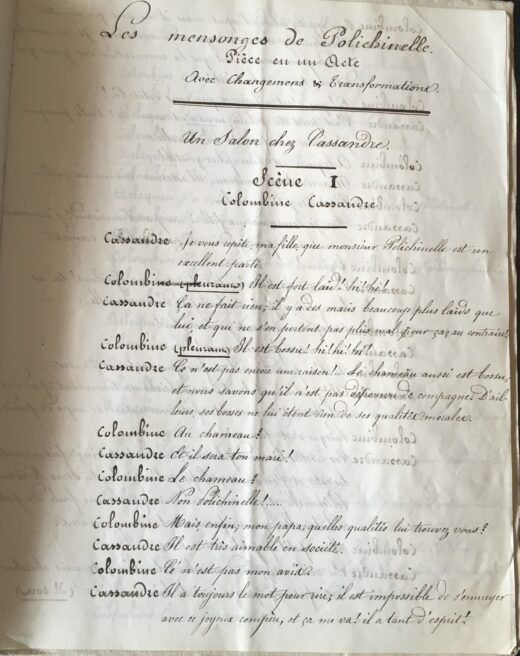 Les mensonges de Polichinelle.
Pièce en un Acte
Avec Changemens & Transformations.
Un Salon chez Cassandre.
Scène I
Colombine Cassandre
Cassandre Je vous répète, ma fille, que monsieur Polichinelle est un
excellent parti.
Colombine (pleurant) Il est fort laid! hi! hi!
Cassandre Ca ne fait rien; il y a des mais beaucoup plus laids que
lui, et qui ne s'en portent pas plus mal pour ça; au contraire!
Colombine (pleurant) Il est bossu! hi! hi! hi!
Cassandre Ce n'est pas encore une raison!... Le chameau aussi est bossu,
et nous savons qu'il n'est pas dépourvu de compagne. D'ail-
leurs, ses bosses ne lui ôtent rien de ses qualités morales.
Colombine Au chameau?
Cassandre Et il sera ton mari!
Colombine Le chameau?
Cassandre Non Polichinelle!....
Colombine Mais enfin, mon papa, quelles qualités lui trouvez vous?
Cassandre Il est très aimable en société.
Colombine Ce n'est pas mon avis.
Cassandre Il a toujours le mot pour rire; il est impossible de s'ennuyer
avec ce joyeux compère, et ça me va! il a tant d'esprit!